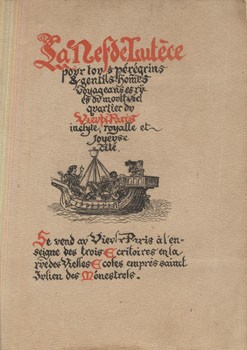 La Nef de Lutèce
povr tovs pérégrins
& gentils homes
voyageans es rv
es dv movlt viel
qvartier dv
Vievx Paris
inclyte, royalle et
joyevse
cité
Se vend av Vievx Paris à l'en-
seigne des trois Escritoires en la
rve des Vielles Ecoles emprès sainct
Jvlien des Ménestrels.